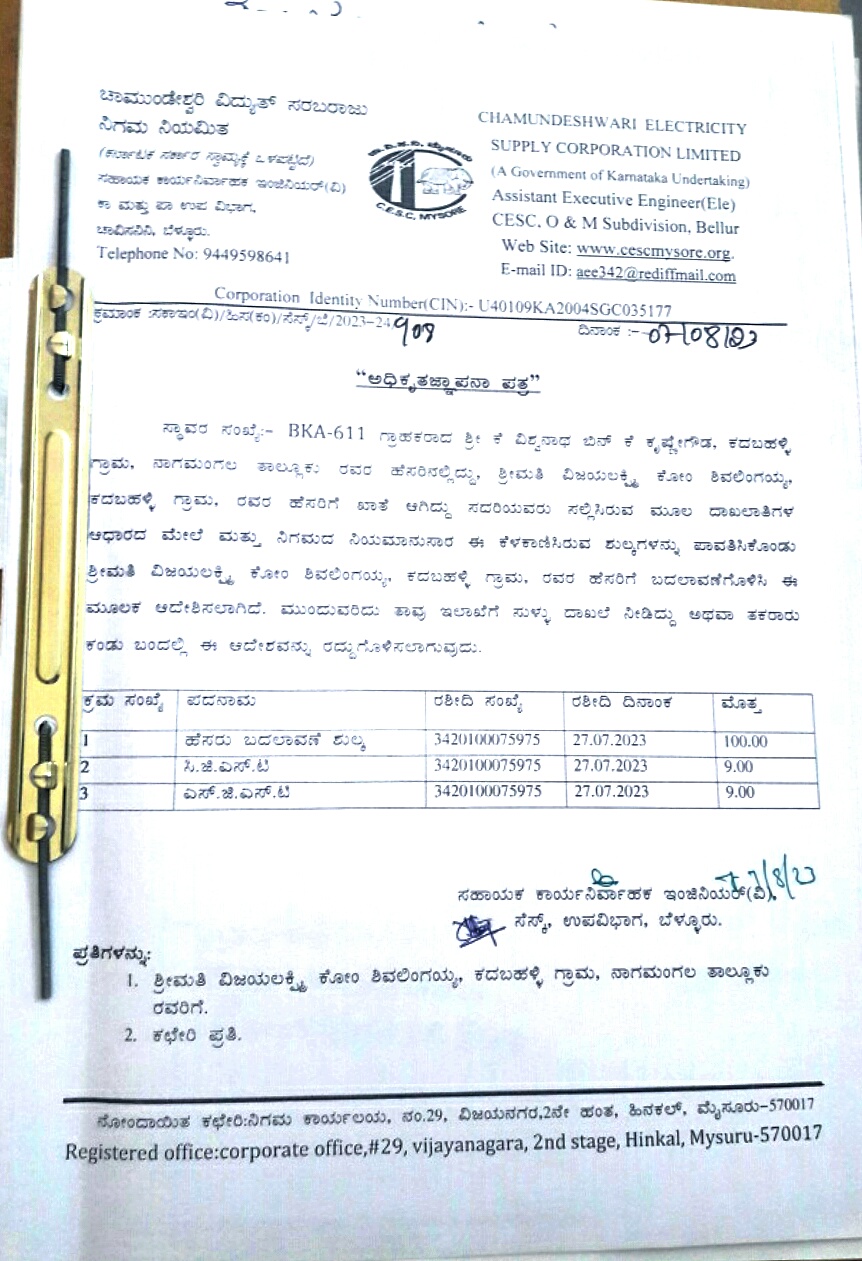 ಚಾಮುಂಡೇಶ್ವರಿ ವಿದ್ಯುತ್ ಸರಬರಾಜು
ನಿಗಮ ನಿಯಮಿತ
(ಕರ್ನಾಟಕ ಸರ್ಕಾರ ಸ್ವಾಮ್ಯಕ್ಕೆ ಒಳಪಟ್ಟಿದೆ)
ಸಹಾಯಕ ಕಾರ್ಯನಿರ್ವಾಹಕ ಇಂಜಿನಿಯರ್(ವಿ)
ಕಾ ಮತ್ತು ಪಾ ಉಪ ವಿಭಾಗ,
ಚಾವಿಸನಿನಿ, ಬೆಳ್ಳೂರು.
Telephone No: 9449598641
C.E.S.C, MYSORE
CHAMUNDESHWARI ELECTRICITY
SUPPLY CORPORATION LIMITED
(A Government of Karnataka Undertaking)
Assistant Executive Engineer(Ele)
CESC, O & M Subdivision, Bellur
Web Site: www.cescmysore.org.
E-mail ID: aee342@rediffmail.com
Corporation Identity Number(CIN):- U40109KA2004SGC035177
ಕ್ರಮಾಂಕ :ಸಕಾಇಂ(ವಿ)/ಹಿಸ(ಕಂ)/ಸೆಸ್ಕ್/ಬೆ/2023-24/908 ದಿನಾಂಕ :- 07/08/23
“ಅಧಿಕೃತಜ್ಞಾಪನಾ ಪತ್ರ”
ಸ್ಥಾವರ ಸಂಖ್ಯೆ:- BKA-611 ಗ್ರಾಹಕರಾದ ಶ್ರೀ ಕೆ ವಿಶ್ವನಾಥ ಬಿನ್ ಕೆ ಕೃಷ್ಣೇಗೌಡ, ಕದಬಹಳ್ಳಿ
ಗ್ರಾಮ, ನಾಗಮಂಗಲ ತಾಲ್ಲೂಕು ರವರ ಹೆಸರಿನಲ್ಲಿದ್ದು, ಶ್ರೀಮತಿ ವಿಜಯಲಕ್ಷ್ಮಿ ಕೋಂ ಶಿವಲಿಂಗಯ್ಯ,
ಕದಬಹಳ್ಳಿ ಗ್ರಾಮ, ರವರ ಹೆಸರಿಗೆ ಖಾತೆ ಆಗಿದ್ದು ಸದರಿಯವರು ಸಲ್ಲಿಸಿರುವ ಮೂಲ ದಾಖಲಾತಿಗಳ
ಆಧಾರದ ಮೇಲೆ ಮತ್ತು ನಿಗಮದ ನಿಯಮಾನುಸಾರ ಈ ಕೆಳಕಾಣಿಸಿರುವ ಶುಲ್ಕಗಳನ್ನು ಪಾವತಿಸಿಕೊಂಡು
ಶ್ರೀಮತಿ ವಿಜಯಲಕ್ಷ್ಮಿ ಕೋಂ ಶಿವಲಿಂಗಯ್ಯ, ಕದಬಹಳ್ಳಿ ಗ್ರಾಮ, ರವರ ಹೆಸರಿಗೆ ಬದಲಾವಣೆಗೊಳಿಸಿ ಈ
ಮೂಲಕ ಆದೇಶಿಸಲಾಗಿದೆ. ಮುಂದುವರಿದು ತಾವು ಇಲಾಖೆಗೆ ಸುಳ್ಳು ದಾಖಲೆ ನೀಡಿದ್ದು ಅಥವಾ ತಕರಾರು
ಕಂಡು ಬಂದಲ್ಲಿ ಈ ಆದೇಶವನ್ನು ರದ್ದುಗೊಳಿಸಲಾಗುವುದು.
ಕ್ರಮ ಸಂಖ್ಯೆ ಪದನಾಮ ರಶೀದಿ ಸಂಖ್ಯೆ ರಶೀದಿ ದಿನಾಂಕ ಮೊತ್ತ
1 ಹೆಸರು ಬದಲಾವಣೆ ಶುಲ್ಕ 3420100075975 27.07.2023 100.00
2 ಸಿ.ಜಿ.ಎಸ್.ಟಿ 3420100075975 27.07.2023 9.00
3 ಎಸ್.ಜಿ.ಎಸ್.ಟಿ 3420100075975 27.07.2023 9.00
7/8/23
ಸಹಾಯಕ ಕಾರ್ಯನಿರ್ವಾಹಕ ಇಂಜಿನಿಯರ್(ವಿ),
ಸೆಸ್ಕ್, ಉಪವಿಭಾಗ, ಬೆಳ್ಳೂರು.
ಪ್ರತಿಗಳನ್ನು:
1. ಶ್ರೀಮತಿ ವಿಜಯಲಕ್ಷ್ಮಿ ಕೋಂ ಶಿವಲಿಂಗಯ್ಯ, ಕದಬಹಳ್ಳಿ ಗ್ರಾಮ, ನಾಗಮಂಗಲ ತಾಲ್ಲೂಕು
ರವರಿಗೆ.
2. ಕಛೇರಿ ಪ್ರತಿ.
ನೋಂದಾಯಿತ ಕಛೇರಿ:ನಿಗಮ ಕಾರ್ಯಲಯ, ನಂ.29, ವಿಜಯನಗರ,2ನೇ ಹಂತ, ಹಿನಕಲ್, ಮೈಸೂರು-570017
Registered office:corporate office,#29, vijayanagara, 2nd stage, Hinkal, Mysuru-570017